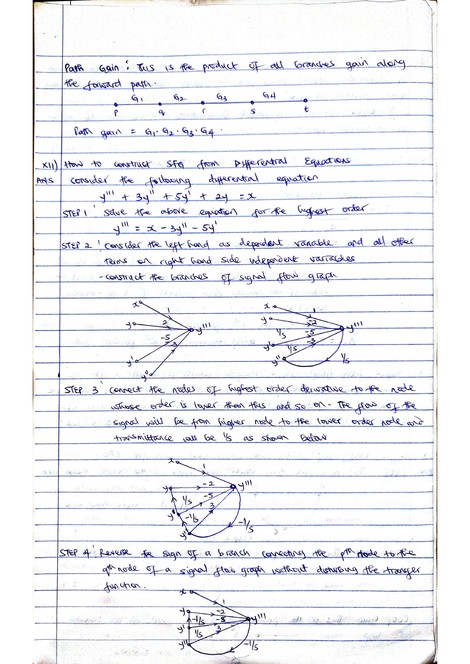 Path Gain : This is the product of all branches gain along
the forward path.
G1 G2 G3 G4
p q r s t
Path gain = G1 . G2 . G3 . G4
XII) How to construct SFG from Differential Equations
Ans Consider the following differential equation
y''' + 3y'' + 5y' + 2y = x
STEP 1 : Solve the above equation for the highest order
y''' = x - 3y'' - 5y'
STEP 2 : Consider the left hand as dependent variable and all other
terms on right hand side independent variables
- construct the branches of signal flow graph
x 1 x 1
y 2 y''' y -2 y'''
-5 3 1/s -5 -3
y' y' 1/s
y'' y'' 1/s
STEP 3 : Connect the nodes of highest order derivative to the node
whose order is lower than this and so on. The flow of the
signal will be from higher node to the lower order node and
transmittance will be 1/s as shown below
x 1
y -2 y'''
1/s -5
y' 3
-1/s
y' -1/s
STEP 4 : Reverse the sign of a branch connecting the pth node to the
qth node of a signal flow graph without disturbing the transfer
function.
x 1
y -2 y'''
-1/s -5
y' 1/s 3
y'' -1/s